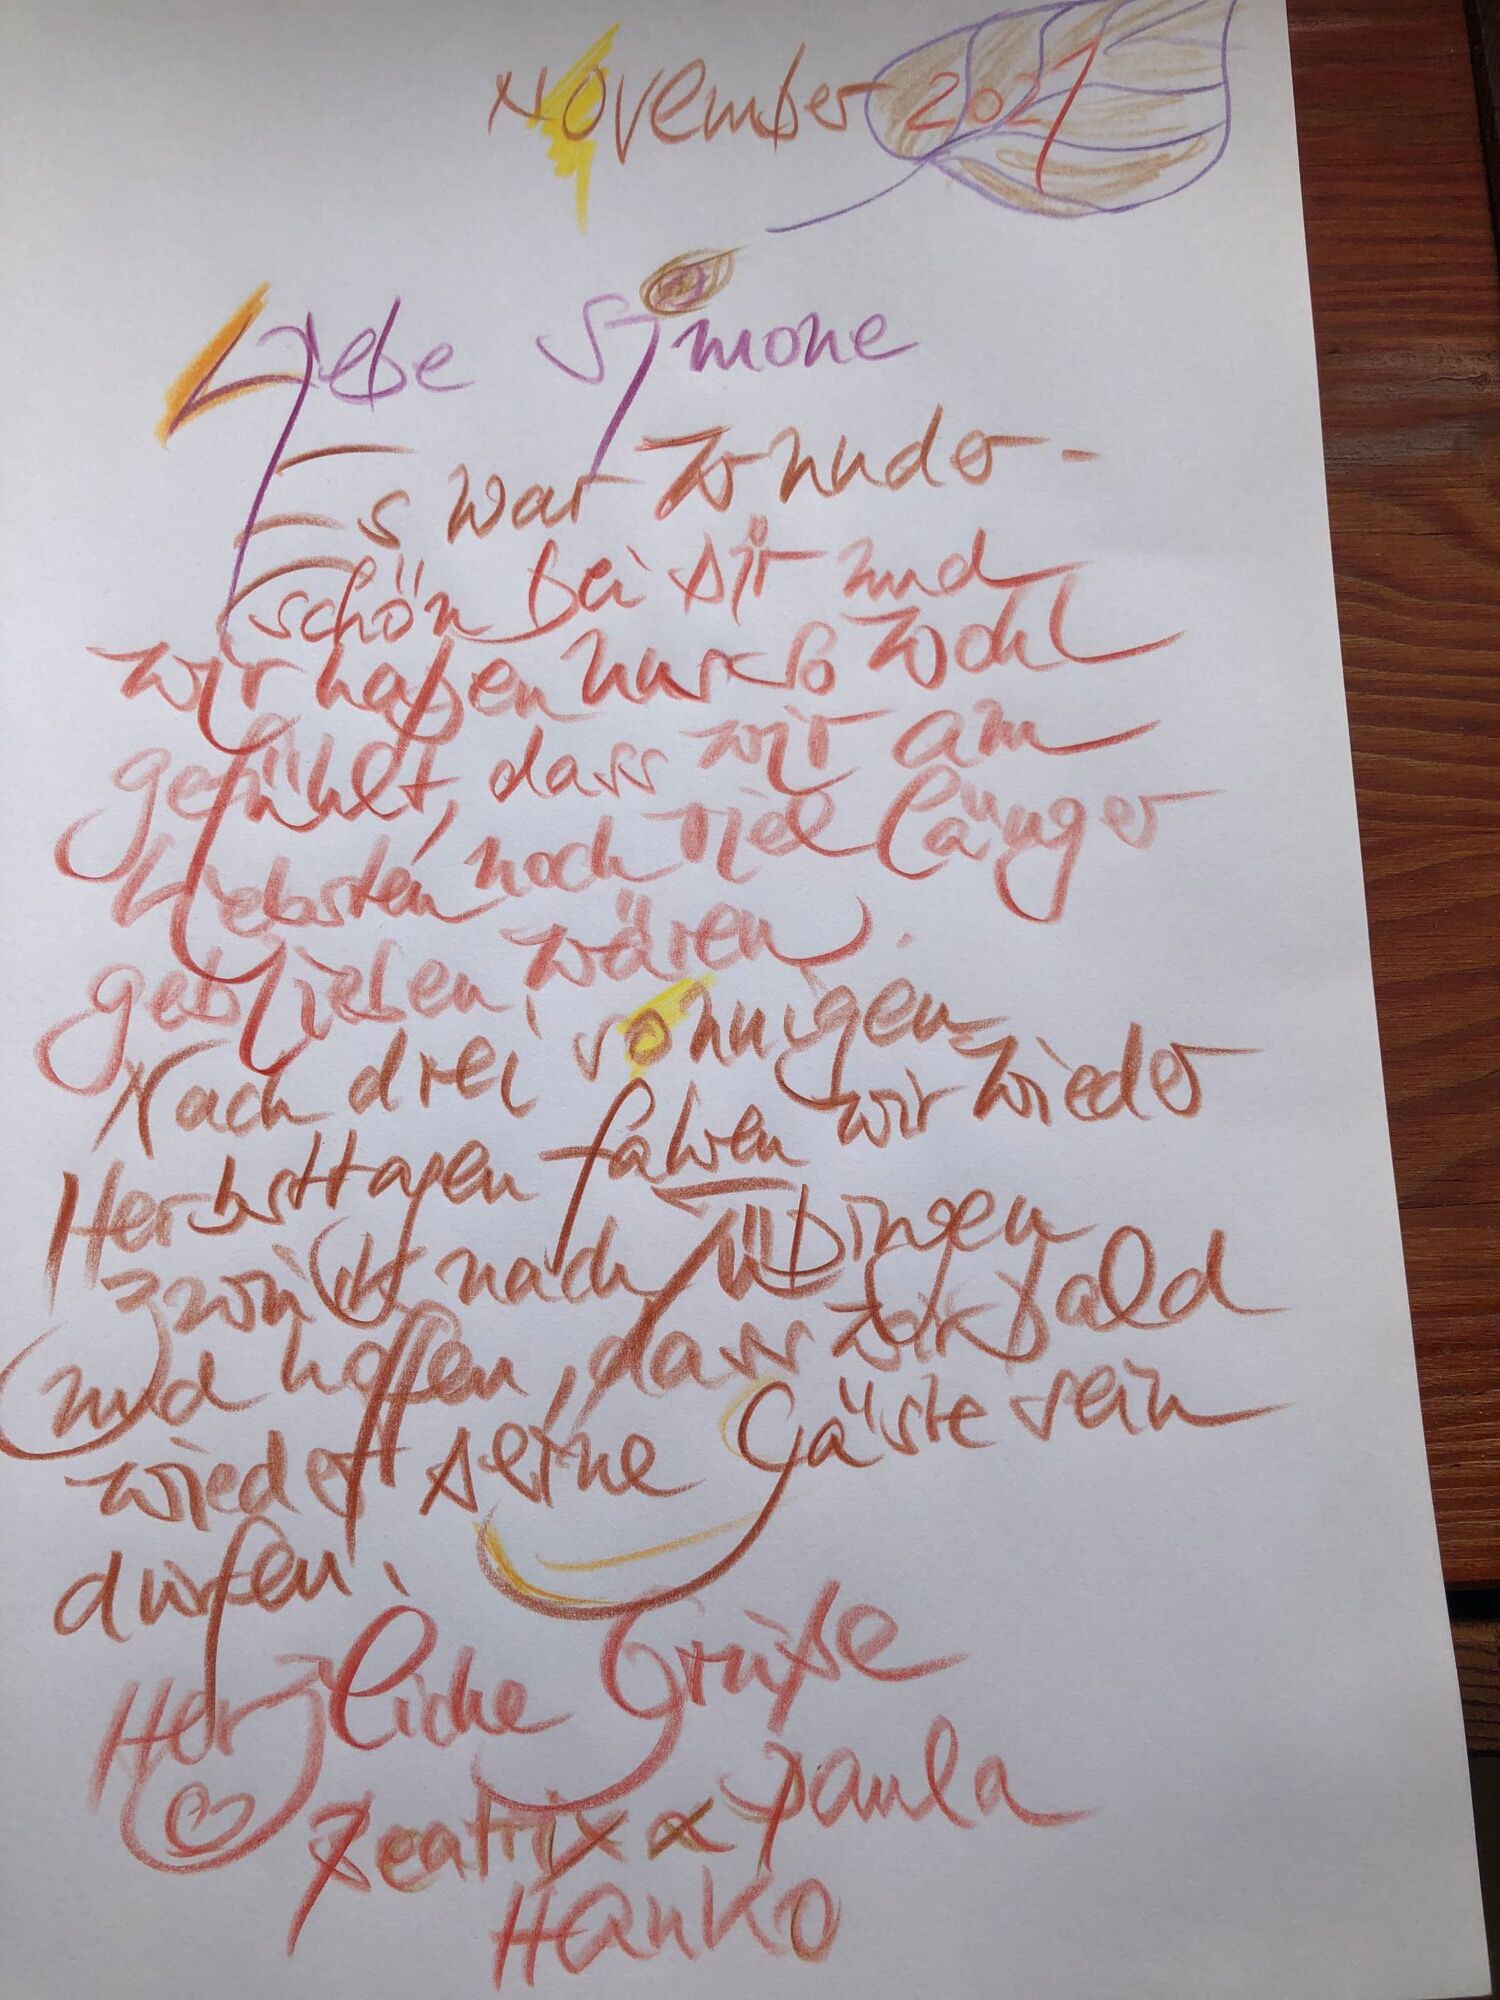 November 2021
Liebe Simone
Es war wunder-
schön bei dir und
wir haben uns so wohl
gefühlt, dass wir am
Liebsten noch viel länger
geblieben wären.
Nach drei sonnigen
Herbsttagen fahren wir wieder
zurück nach Tübingen
und hoffen, dass wir bald
wieder deine Gäste sein
dürfen.
Herzliche Grüße
Beatrix & Paula
Hanko